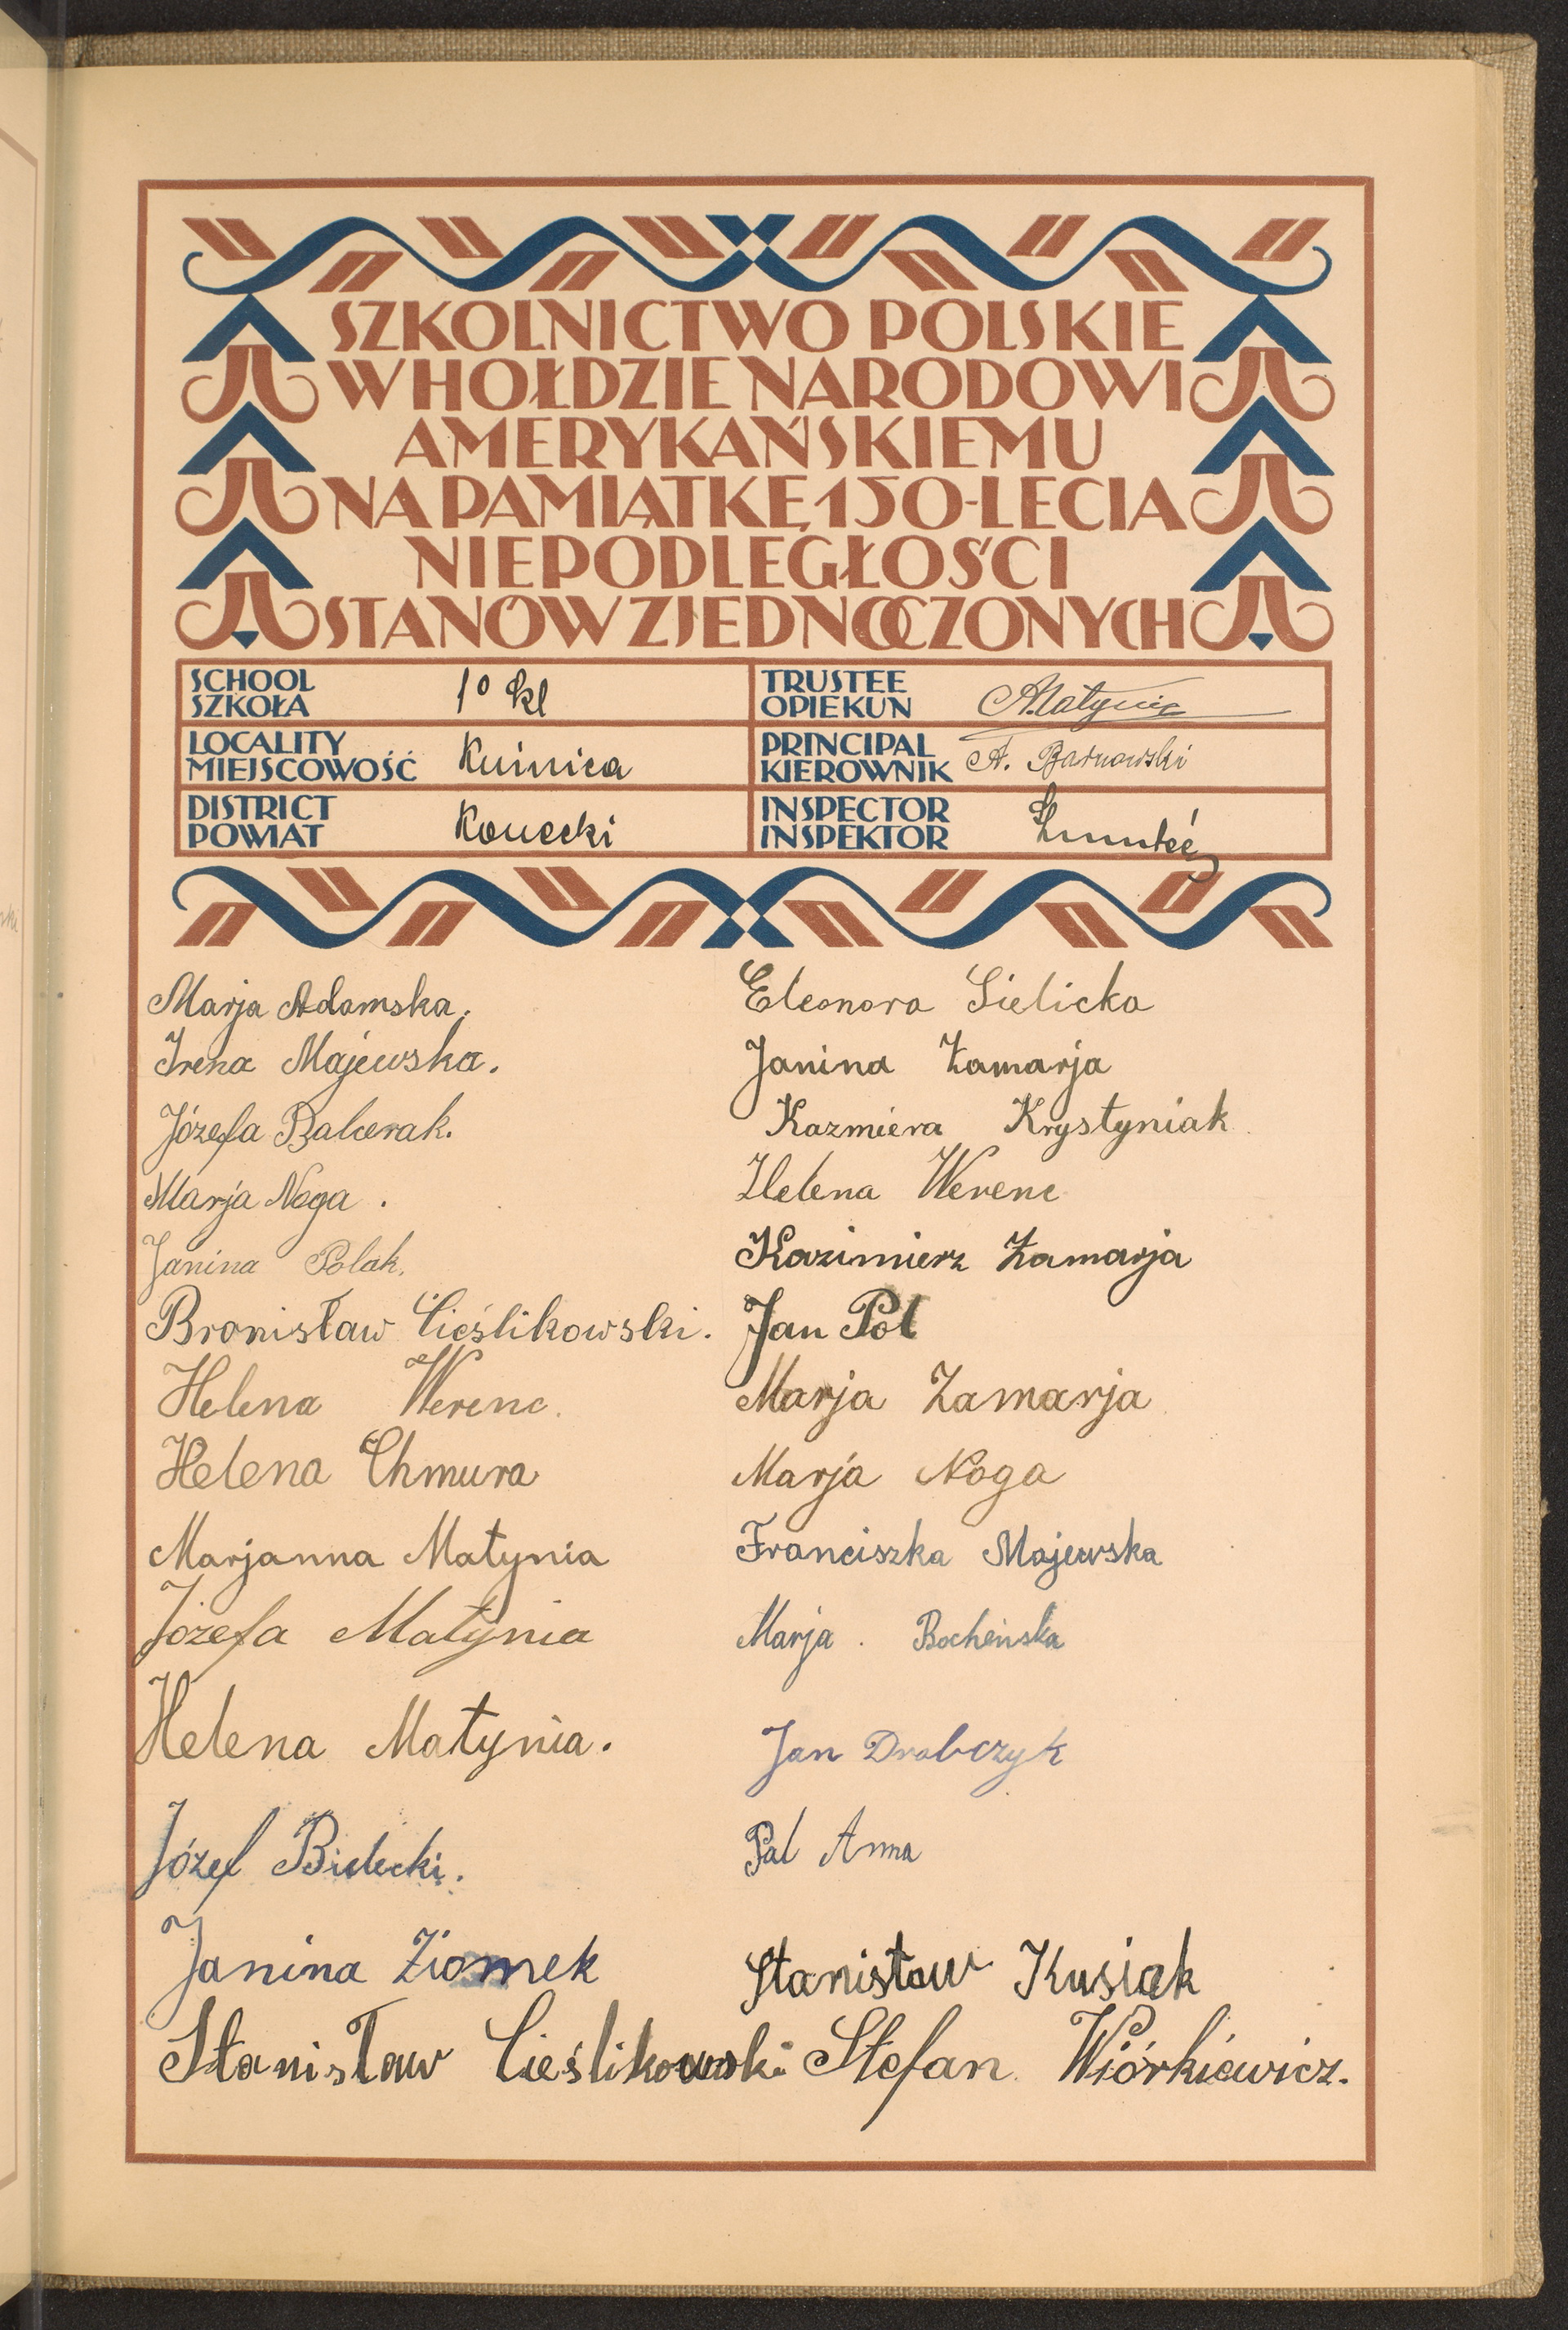 SZKOLNICTWO POLSKIE
W HOŁDZIE NARODOWI
AMERYKAŃSKIEMU
NA PAMIĄTKĘ 150-LECIA
NIEPODLEGŁOŚCI
STANÓW ZJEDNOCZONYCH
SCHOOL
SZKOŁA
1° kl
TRUSTEE
OPIEKUN
A. Matynia
LOCALITY
MIEJSCOWOŚĆ
Kuźnica
PRINCIPAL
KIEROWNIK
A. Barnowski
DISTRICT
POWIAT
Konecki
INSPECTOR
INSPEKTOR
Marja Adamska.
Irena Majewska.
Józefa Balcerak.
Marja Noga.
Janina Polak.
Bronisław Cieślikowski.
Helena Werenc.
Helena Chmura
Marjanna Matynia
Józefa Matynia
Helena Matynia.
Józef Bielecki.
Janina Ziomek
Stanisław Cieślikowski
Eleonora Sielicka
Janina Zamarja
Kazmiera Krystyniak
Helena Werenc
Kazimierz Zamarja
Jan Pol
Marja Zamarja
Marja Noga
Franciszka Majewska
Marja. Bocheńska
Jan Drabczyk
Pal Anna
Stanisław Kusiak
Stefan Wiórkiewicz.